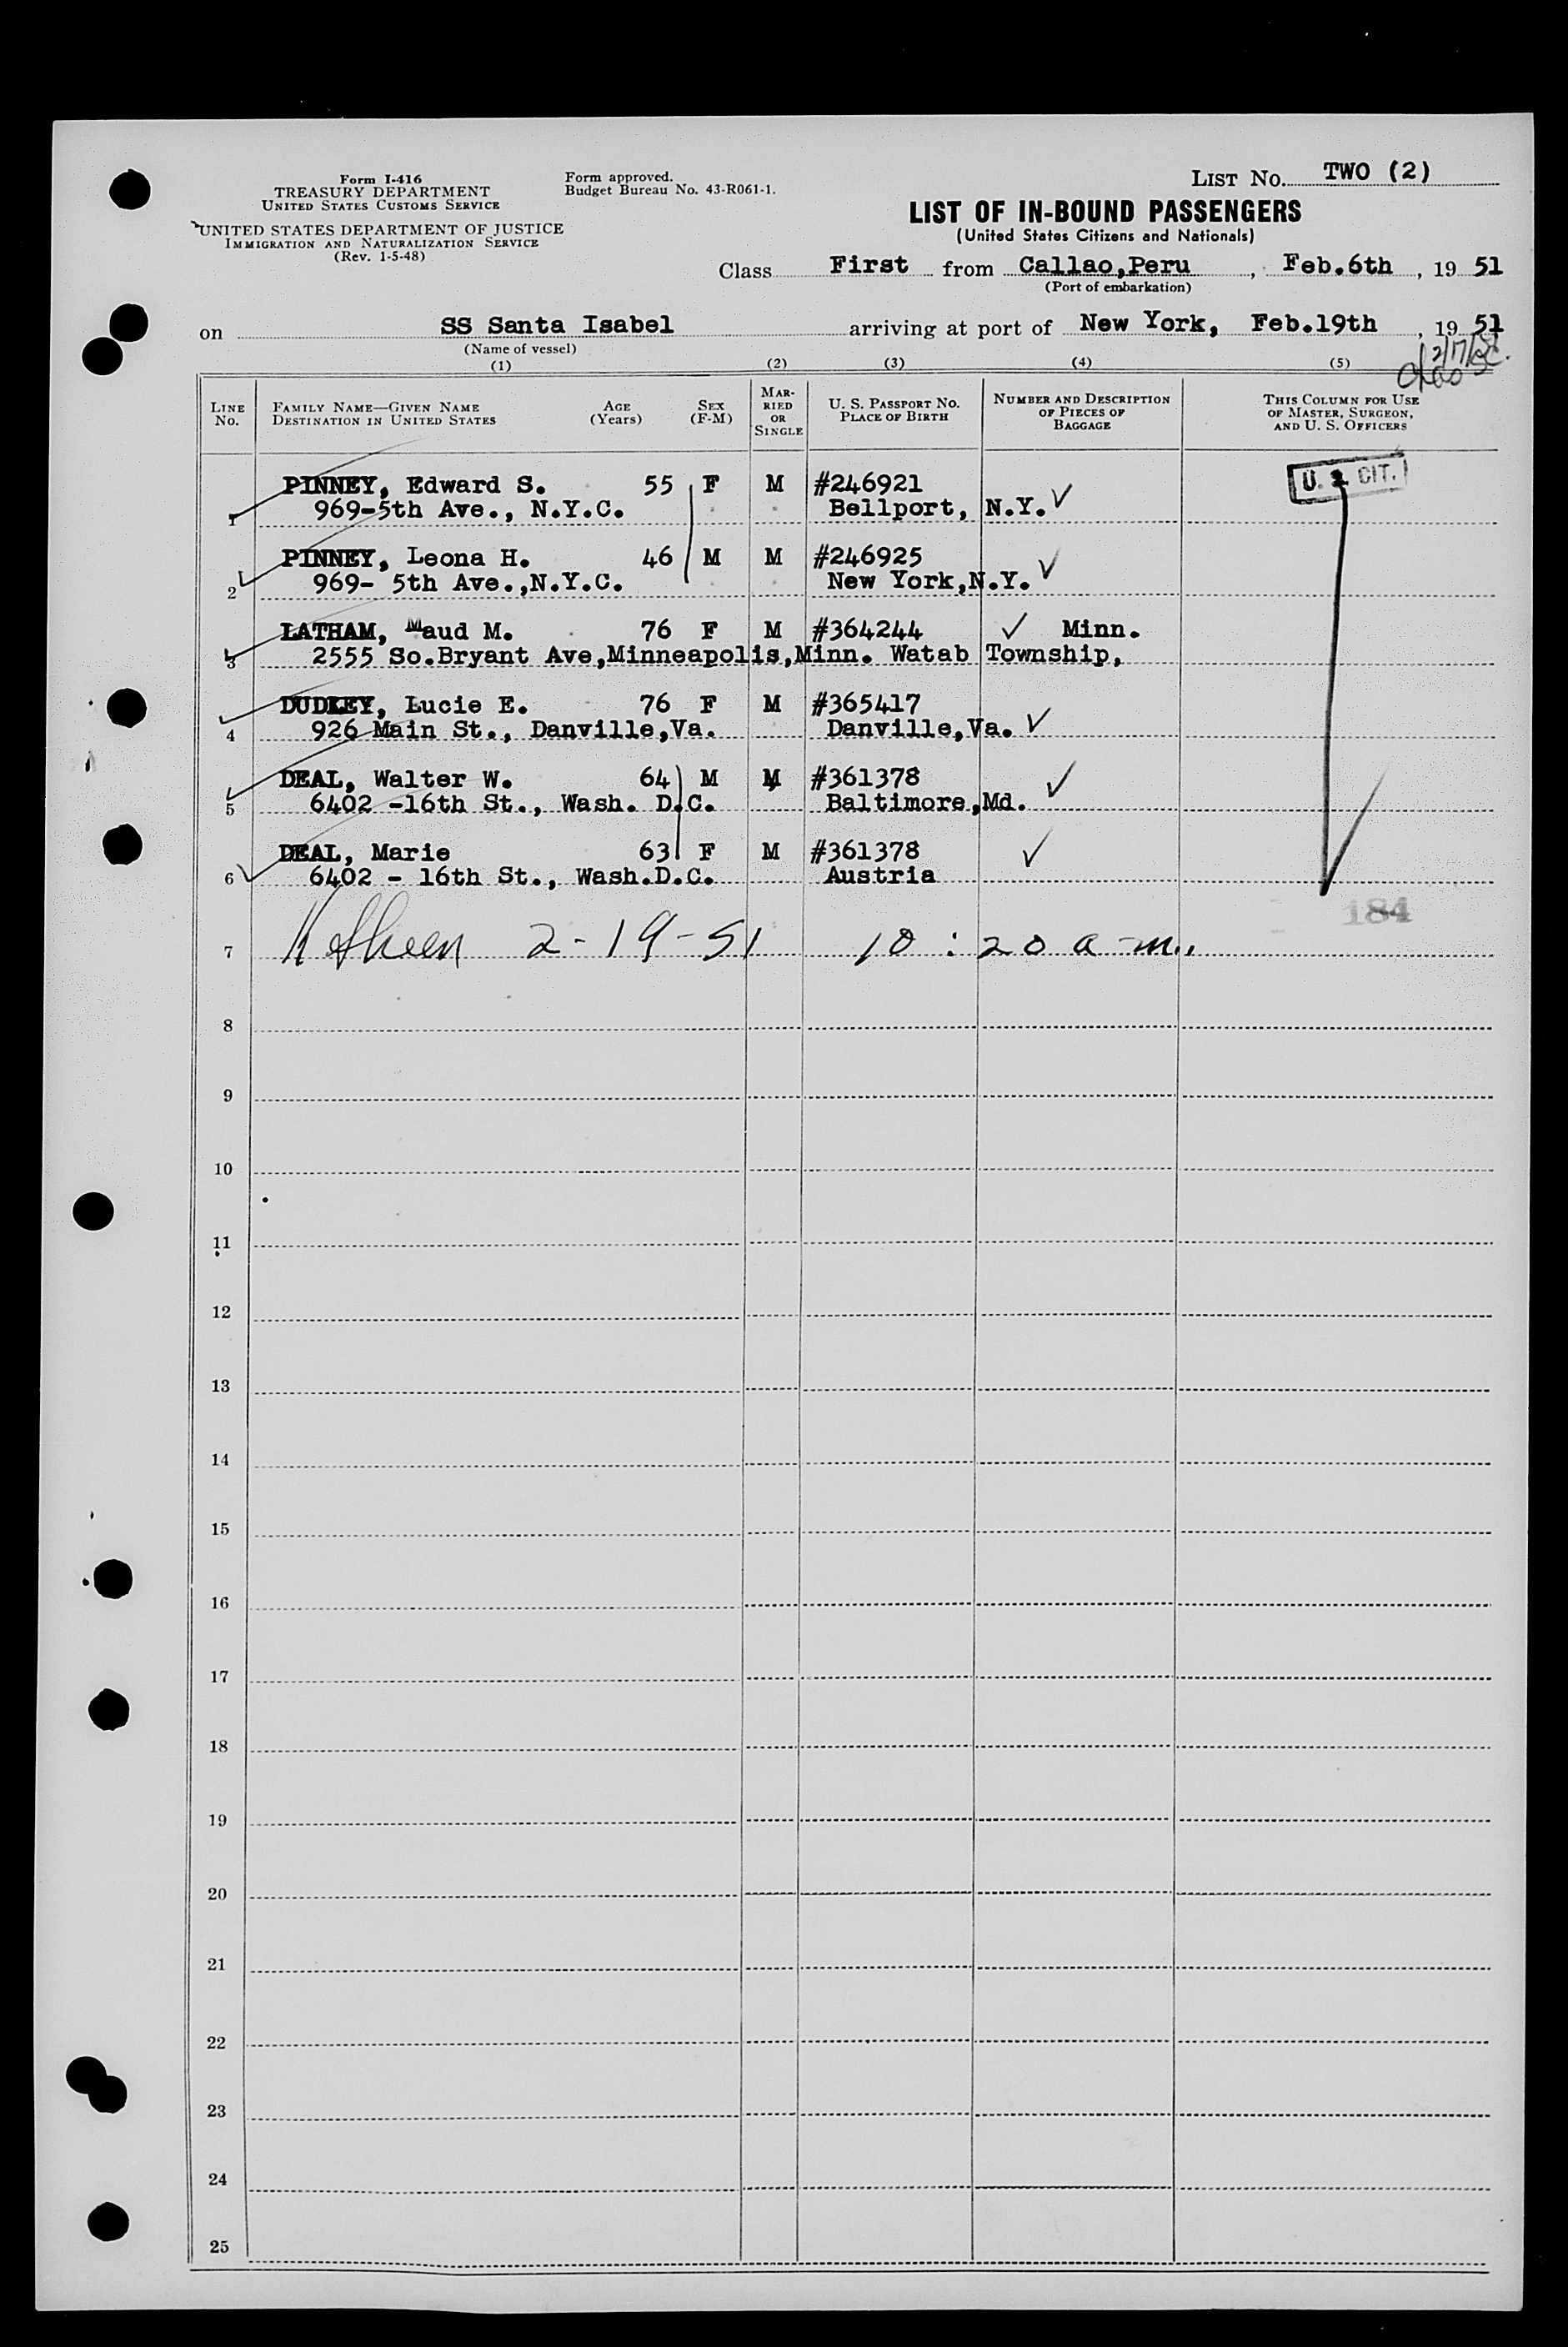 Form I-416
TREASURY DEPARTMENT
UNITED STATES CUSTOMS SERVICE
UNITED STATES DEPARTMENT OF JUSTICE
IMMIGRATION AND NATURALIZATION SERVICE
(Rev. 1-5-48)
Form approved.
Budget Bureau No. 43-R061-1.
LIST NO. TWO (2)
LIST OF IN-BOUND PASSENGERS
(United States Citizens and Nationals)
Class First from Callao,Peru, Feb.6th, 19 51
(Port of embarkation)
on SS Santa Isabel arriving at port of New York, Feb.19th, 19 51
(Name of vessel)
(1) (2) (3) (4) (5)
LINE NO. FAMILY NAME—GIVEN NAME DESTINATION IN UNITED STATES AGE (Years) SEX (F-M) MARRIED OR SINGLE U. S. PASSPORT NO. PLACE OF BIRTH NUMBER AND DESCRIPTION OF PIECES OF BAGGAGE THIS COLUMN FOR USE OF MASTER, SURGEON, AND U. S. OFFICERS
PINNEY, Edward S. 55 F M #246921 U. S. CIT.
1 969-5th Ave., N.Y.C. Bellport, N.Y. ✓
PINNEY, Leona H. 46 M M #246925
2 969- 5th Ave.,N.Y.C. New York,N.Y. ✓
LATHAM, Maud M. 76 F M #364244 ✓ Minn.
3 2555 So.Bryant Ave,Minneapolis,Minn. Watab Township,
DUDLEY, Lucie E. 76 F M #365417
4 926 Main St., Danville,Va. Danville,Va. ✓
DEAL, Walter W. 64 M M #361378
5 6402 -16th St., Wash. D.C. Baltimore,Md. ✓
DEAL, Marie 63 F M #361378 ✓
6 6402 - 16th St., Wash.D.C. Austria
184
7 2-19-51 10:20 a-m.
8
9
10
11
12
13
14
15
16
17
18
19
20
21
22
23
24
25